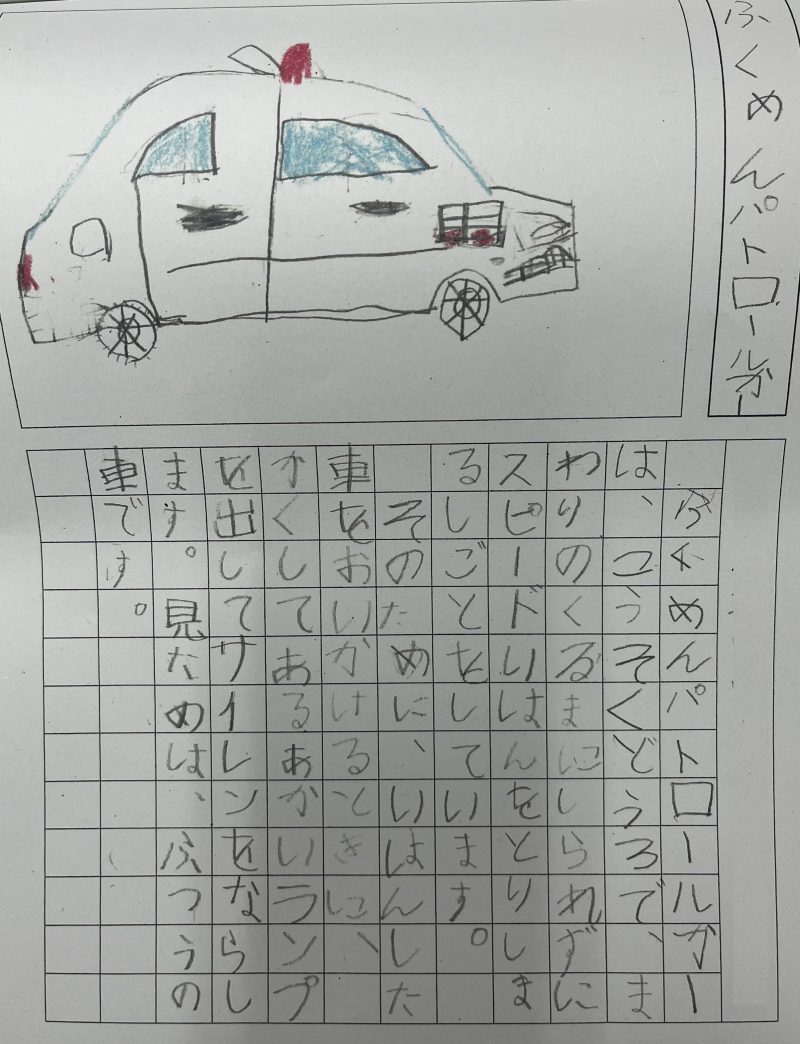 ふくめんパトロールカー
ふくめんパトロールカー
は、こうそくどうろで、ま
わりのくるまにしられずに
スピードいはんをとりしま
るしごとをしています。
そのために、いはんした
車をおいかけるときに、
かくしてあるあかいランプ
を出してサイレンをならし
ます。見ためは、ふつうの
車です。